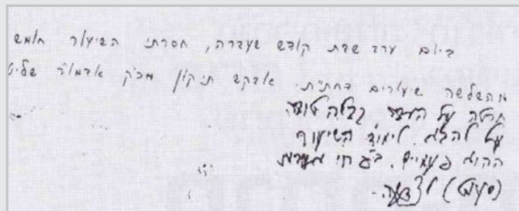 ביום ערד שבת קודש שעברה, חסרתי השיעור חומש
מהשלשה שיעורים דחת״ת. אבקש תיקון מכ״ק אדמו״ר שליט
חרטה על העבר. קבלה טובה
על להבא. לימוד השיעור
ההוא פעמיים. ב״פ חי מעות
(סענט) לצדקה.